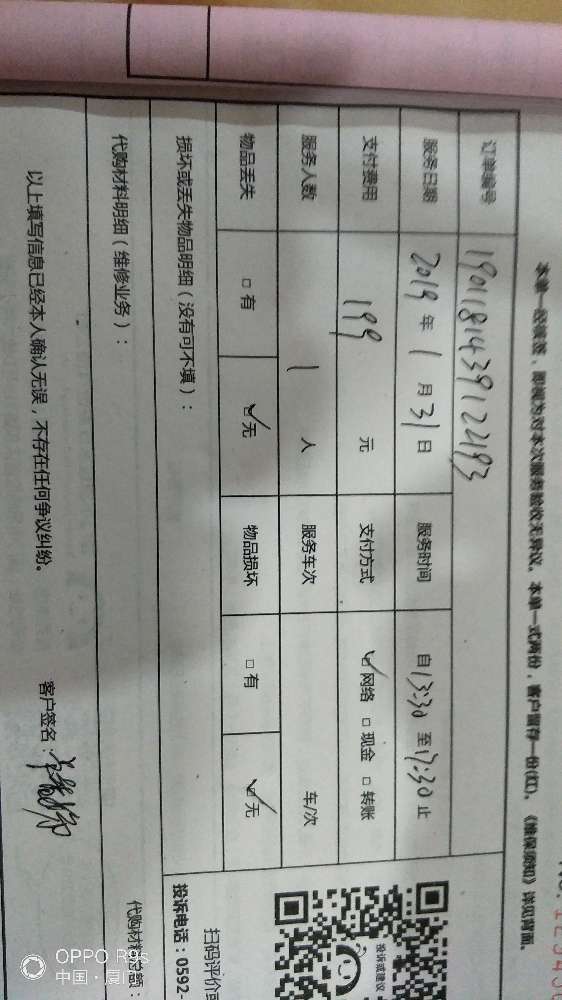 本单一经核签，即视为对本次服务验收无异议。本单一式两份，客户留存一份(红)。《维保须知》详见背面。
订单编号 190118143912493
服务日期 2019 年 1 月 31 日 服务时间 自 13:30 至 17:30 止
支付费用 199 元 支付方式 ☑网络 □ 现金 □ 转账
服务人数 1 人 服务车次 车/次
物品丢失 □ 有 ☑无 物品损坏 □ 有 ☑无
损坏或丢失物品明细（没有可不填）：
代购材料明细（维修业务）：
代购材料总额：
以上填写信息已经本人确认无误，不存在任何争议纠纷。
客户签名：
投诉或建议
扫码评价或
投诉电话：0592-
OPPO R9s
中国·厦门